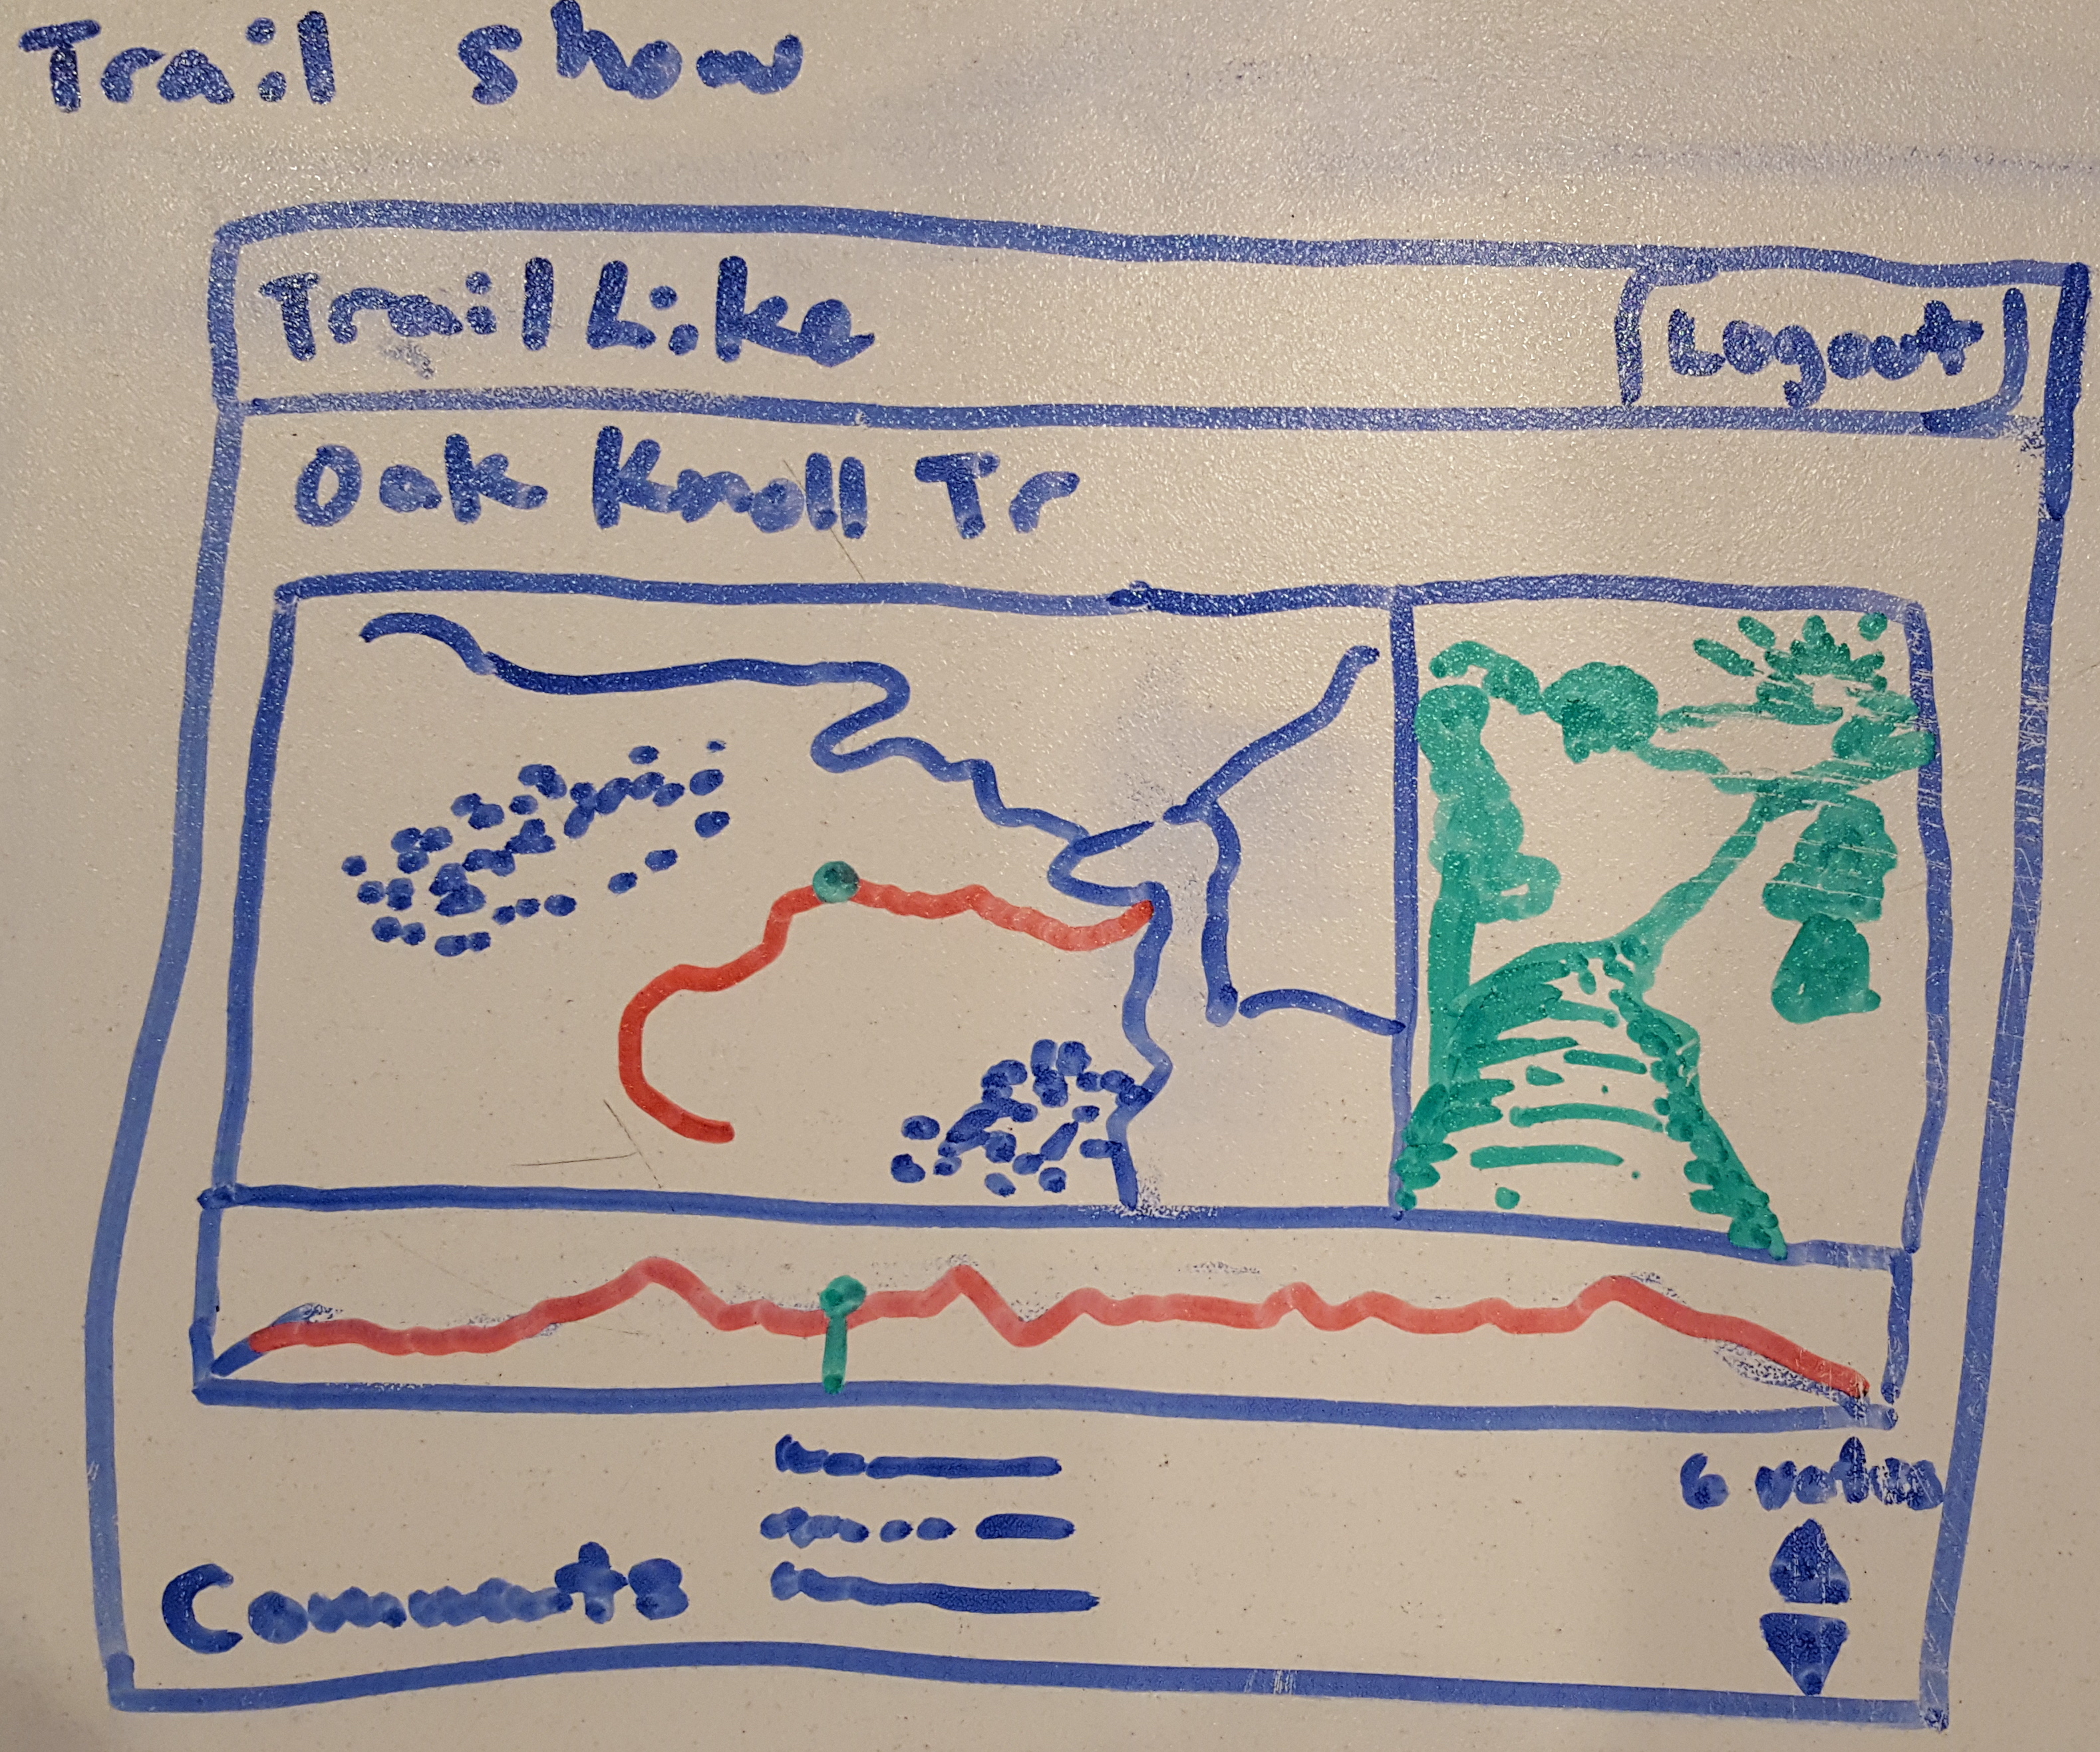 Trail show
Trail Like
Logout
Oak Knoll Tr
6 votes
Comments